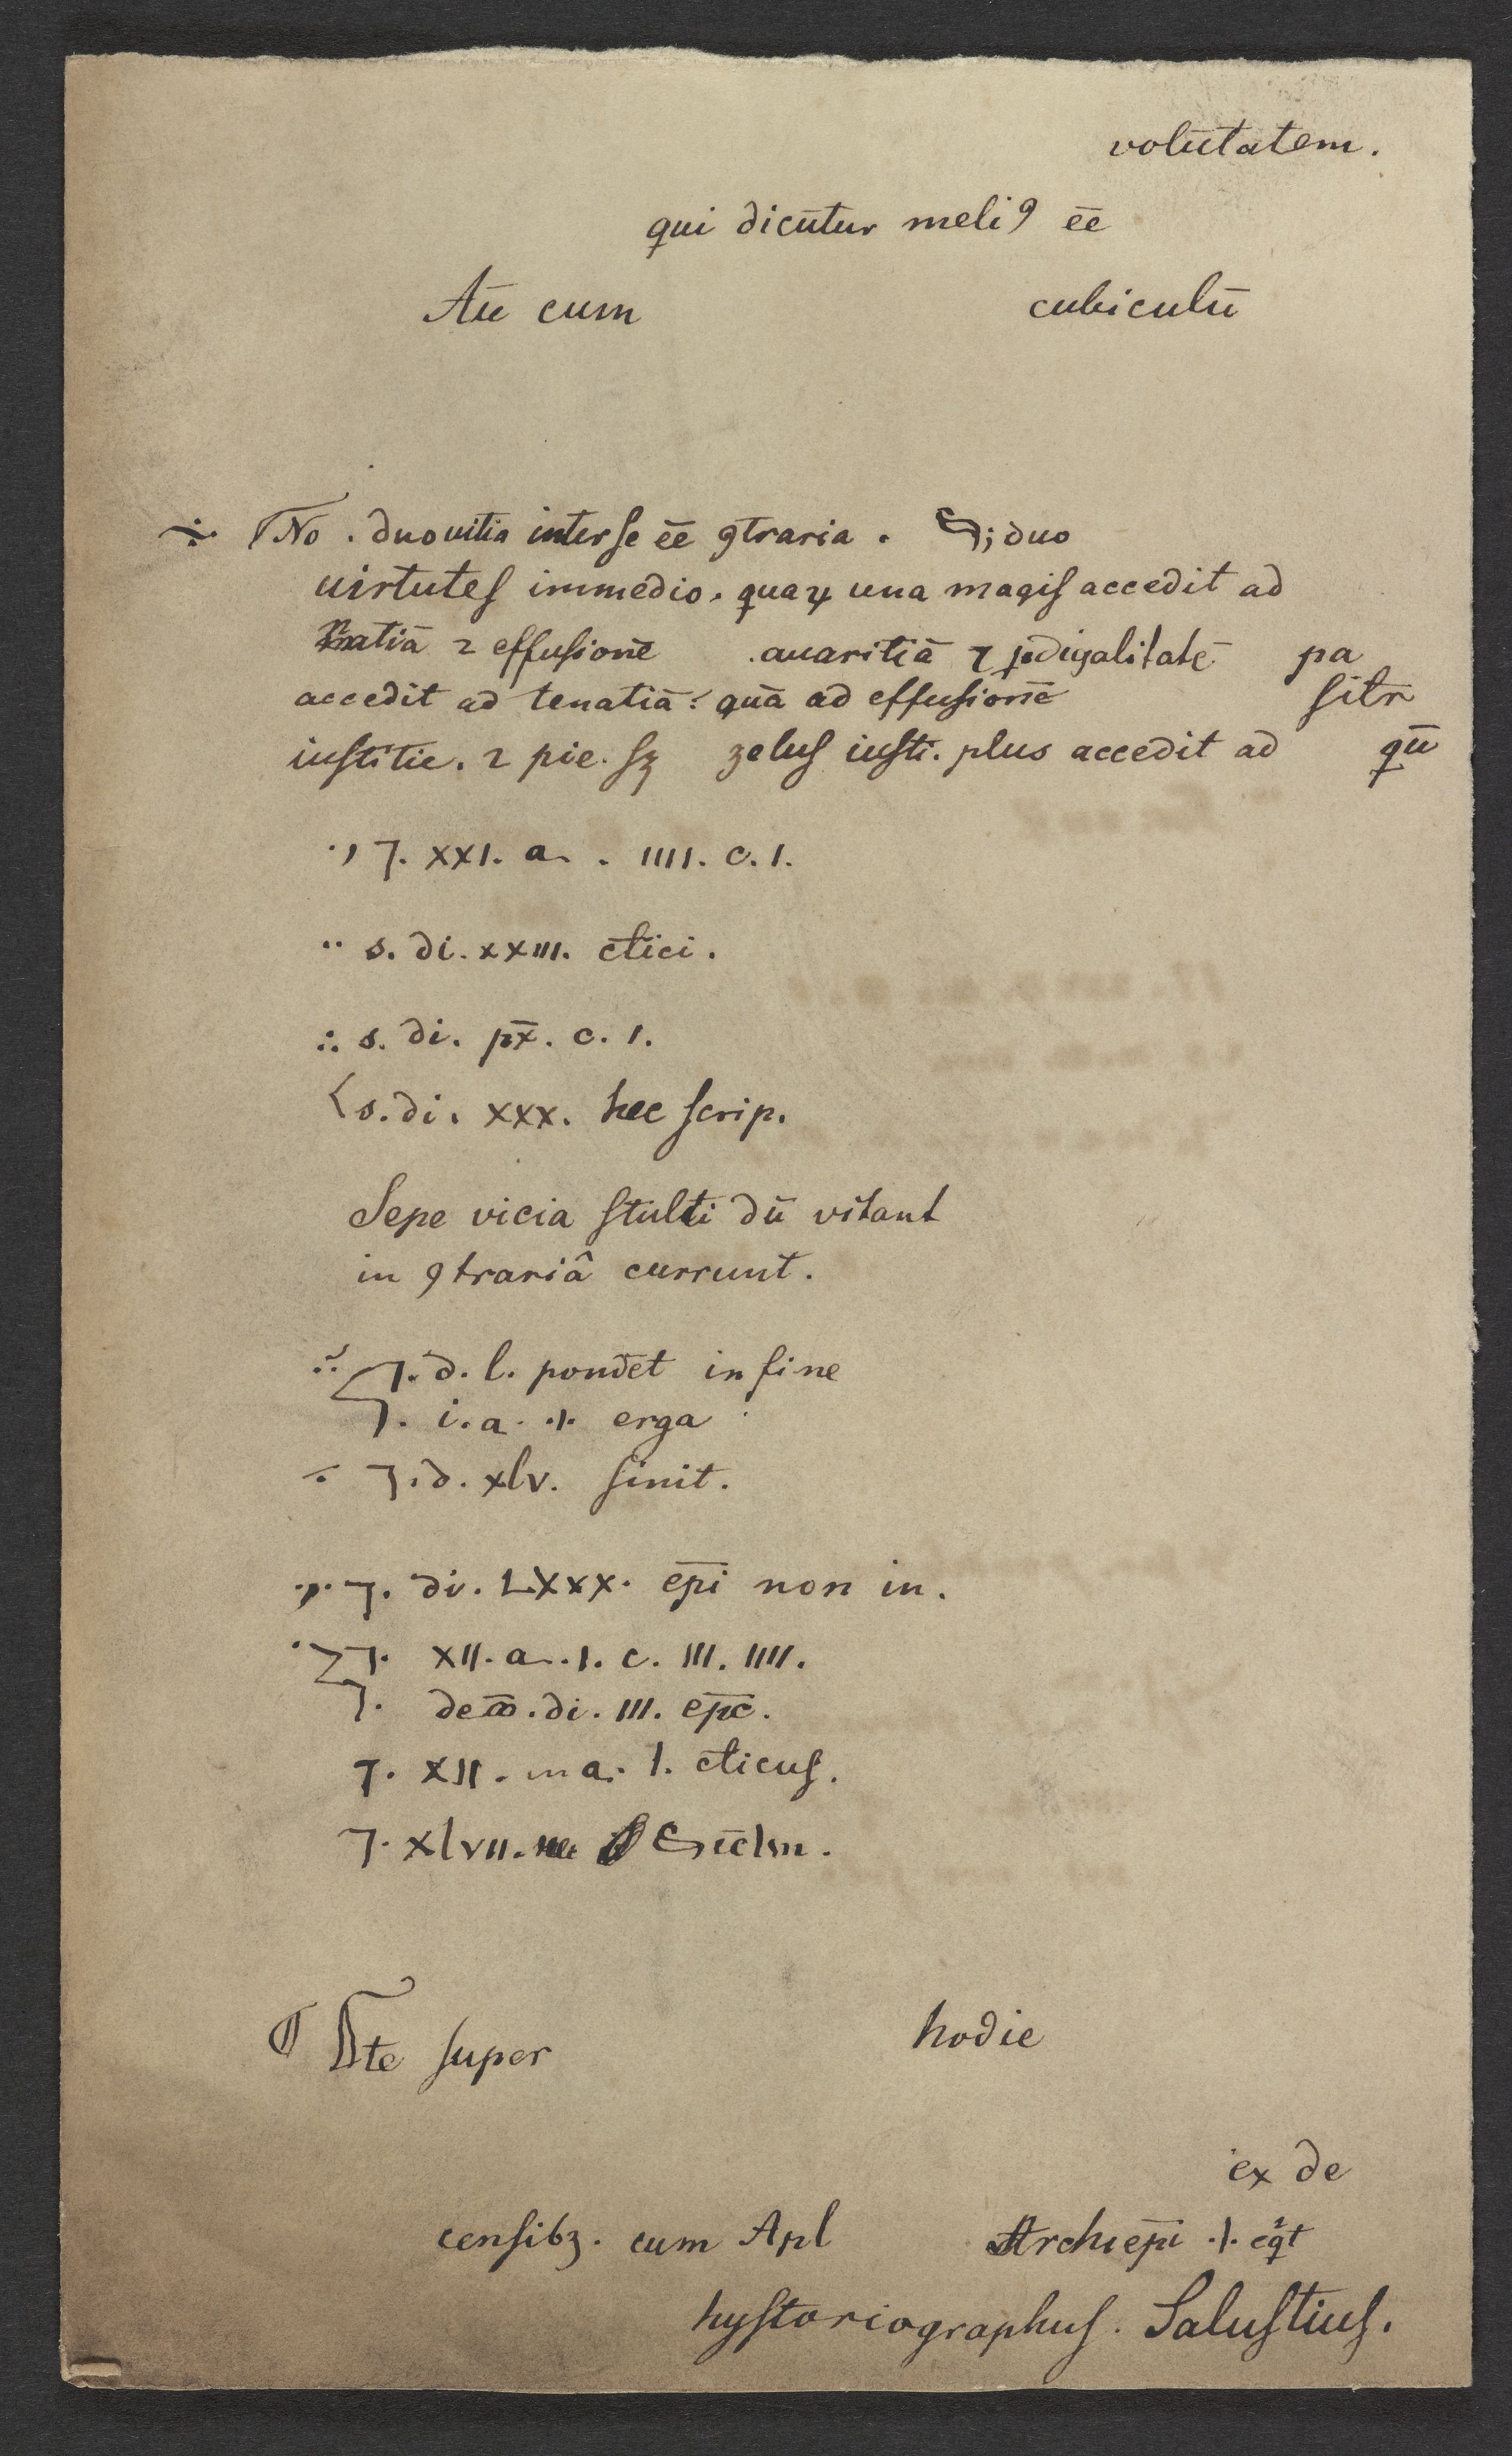 volūtatem.
qui dicūtur meli9 ēē
Aū cum cubiculū
No . duo uitia inter se ēē 9traria . S; duo
uirtutes immedio. quaꝝ una magis accedit ad
effusionē .auaritiā ⁊ ꝓdigalitatē pa
accedit ad tenatiā: quā ad effusionē sitr
iustitie. ⁊ pie. sʒ zelus iusti. plus accedit ad qū
⁊. xxi. a. . iiii. c. i.
s. di. xxiii. c̄tici.
s. di. px̄. c. i.
s. di. xxx. hec scrip.
Sepe vicia stulti dū vitant
in 9trariâ currunt.
⁊. d. l. pondēt in fine
⁊. i. a. .i. erga
⁊. d. xlv. sinit.
⁊. di. Lxxx. ep̄i non in.
⁊. xii. a. .i. c. iii. iiii.
⁊. de 9̄. di. iii. ep̄c.
⁊. xii. a. i. c̄ticus.
⁊. xlvii.
te super hodie
ex de
censibʒ. cum Apl Archiep̄i .i. eq̄t
hystoriographus. Salustius.